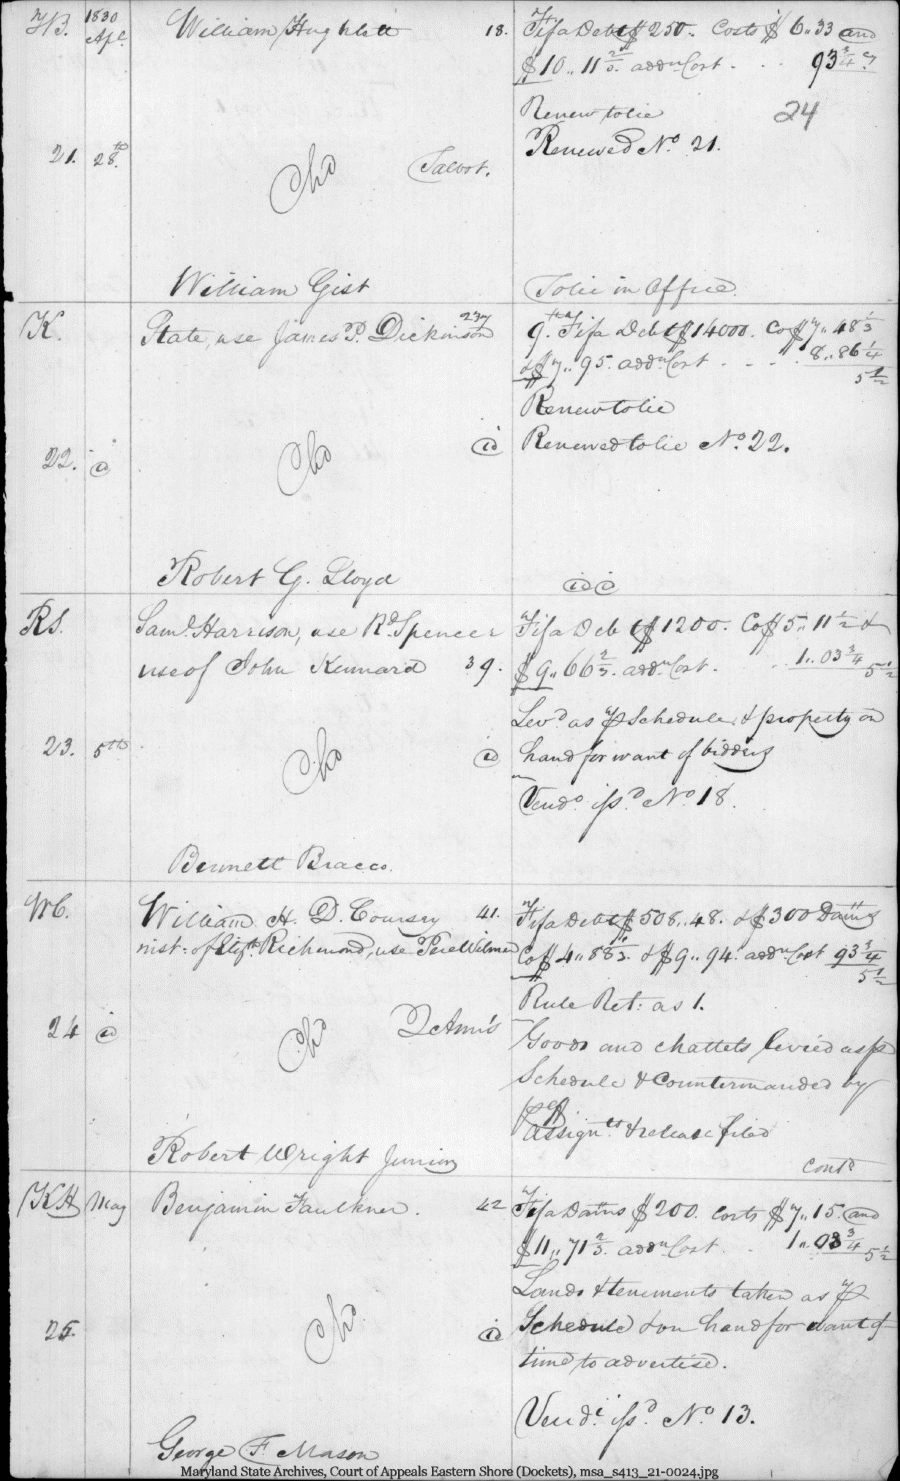 1830
Apl.
William Hughlett 18. Fifa Debt $250. Costs $6..33 and
$10..11 2/3. addnl Cost . . . 93 3/4
Renew tolie 24
21. 28th Renewed No 21.
Cho Talbot.
William Gist Tolie in Office
K. State, use James P. Dickinson 237 9. Fifa Debt $14000. Co$ 7..48 1/3
& $7..95. addnl Cost . . . 8..86 1/4
5 1/2
Renew tolie
22. Cho Renewed tolie No. 22.
Robert G. Lloyd
RS. Saml. Harrison, use Rd. Spencer Fifa Debt $1200. Co$ 5..11 1/2 &
use of John Kennard 39. $9..66 2/3. addnl Cost . 1..03 3/4
5 1/2
Levd as pr Schedule, & property on
23. 5th Cho hand for want of bidders
Vendo issd No 18.
Bennett Bracco.
WC. William H. D. Coursey 41. Fifa Debt $508..48. & $300 Damgs
nist. of Richmond, use Pere Wilmer Co$ & $9..94. addnl Cost 93 3/4
5 1/2
Rule Ret: as 1.
24 Cho QAnn's Goods and chattels levied as pr
Schedule & Countermanded by
assignt & release filed
Robert Wright Junior contd
KH May Benjamin Faulkner. 42 Fifa Dams $200. Costs $7..15. and
$11..71 2/3. addnl Cost . . 1..03 3/4
5 1/2
Lands & tenements taken as pr
25. Cho Schedule & on hand for want of
time to advertise.
Vendi issd No 13.
George F. Mason
Maryland State Archives, Court of Appeals Eastern Shore (Dockets), msa_s413_21-0024.jpg